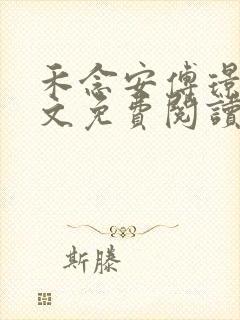 禾念安傅璟
文免費閱讀
斯滕